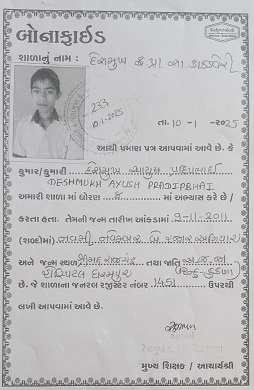 બોનાફાઈડ
શાળાનું નામ : દેશમુખ
233
10-1-2025
તા. 10 - 1 - 2025
આથી પ્રમાણ પત્ર આપવામાં આવે છે. કે
કુમાર/કુમારી દેશમુખ આયુષ પ્રદિપભાઈ
DESHMUKH AYUSH PRADIPBHAI
અમારી શાળા માં ધોરણ ૮ માં અભ્યાસ કરે છે /
કરતા હતા. તેમની જન્મ તારીખ આંકડામાં 9-11-2011
(શબ્દોમાં) નવમી નવેમ્બર બે હજાર અગિયાર
અને જન્મ સ્થળ તથા જાતિ
હોસ્પિટલ ધરમપુર હિન્દુ-કુકણા
છે. જે શાળાના જનરલ રજીસ્ટર નંબર 1451 ઉપરથી
લખી આપવામાં આવે છે.
મુખ્ય શિક્ષક / આચાર્યશ્રી